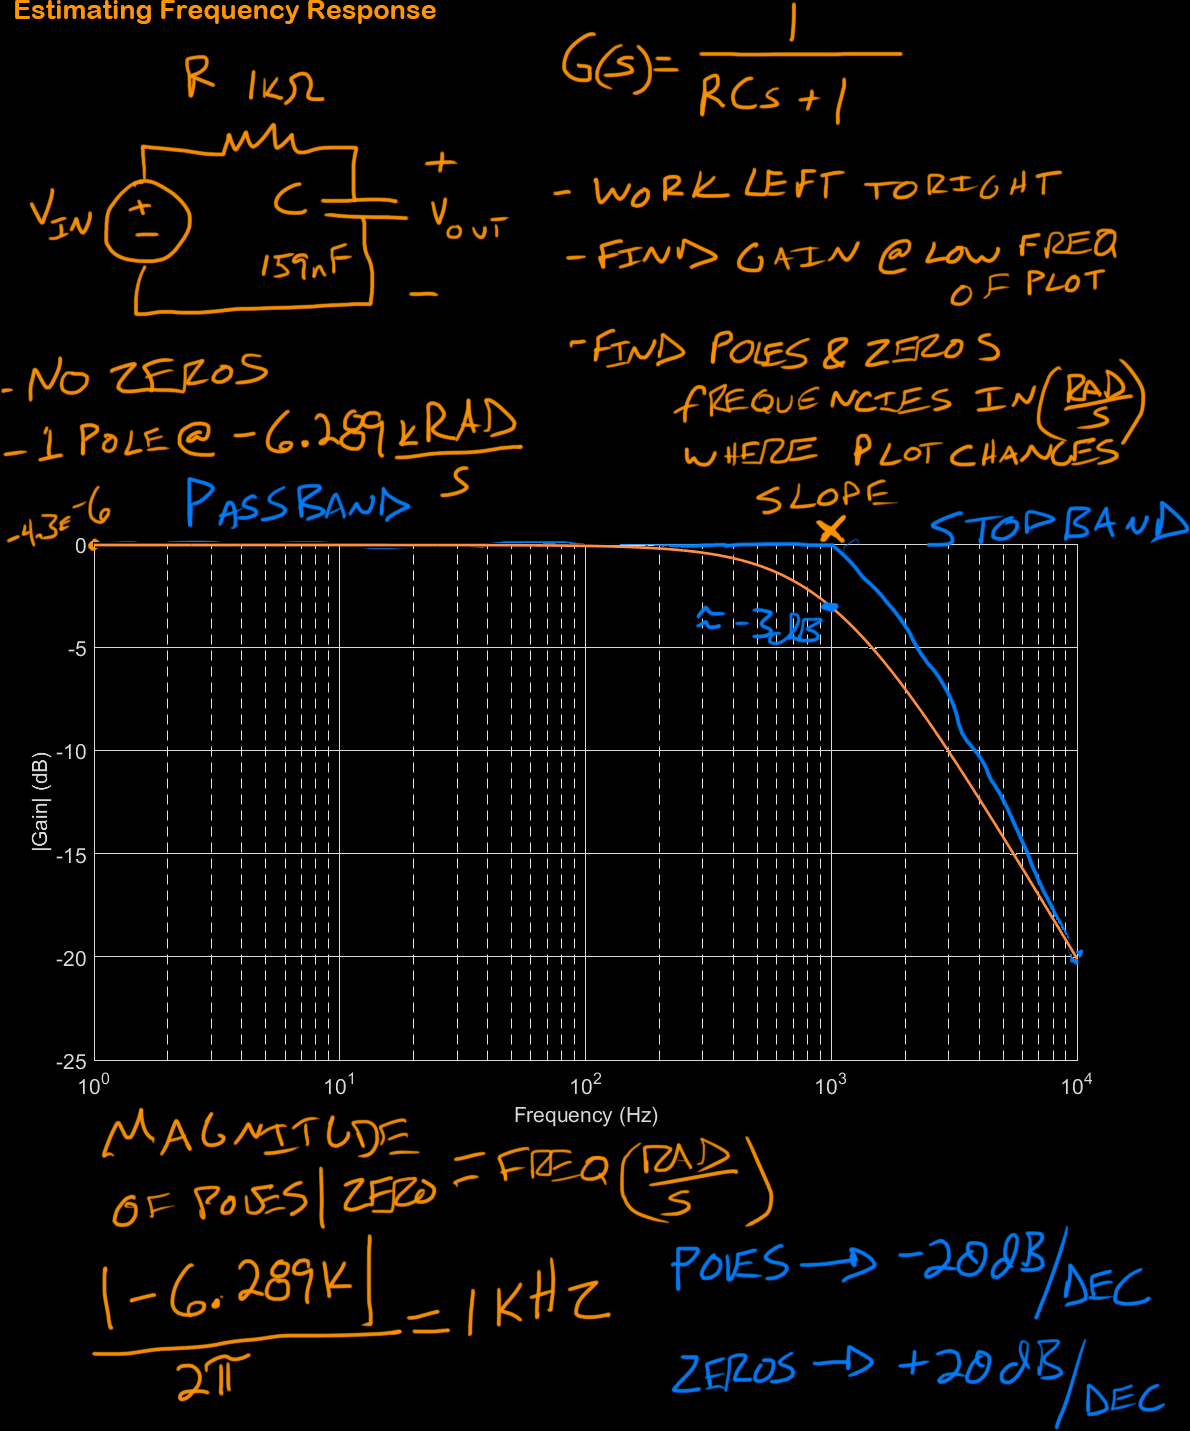 Estimating Frequency Response
R 1KΩ
G(s)= 1
RCs + 1
VIN
+
-
C
159nF
+
VOUT
-
- WORK LEFT TO RIGHT
- FIND GAIN @ LOW FREQ
OF PLOT
- FIND POLES & ZEROS
FREQUENCIES IN (RAD/S)
WHERE PLOT CHANGES
SLOPE
- NO ZEROS
- 1 POLE @ -6.289 KRAD/S
-4.3E-6
PASSBAND
X
STOPBAND
≈ -3dB
0
-5
-10
-15
-20
-25
|Gain| (dB)
10⁰ 10¹ 10² 10³ 10⁴
Frequency (Hz)
MAGNITUDE
OF POLES|ZERO = FREQ (RAD/S)
|-6.289K|
2π
= 1KHZ
POLES → -20dB/DEC
ZEROS → +20dB/DEC